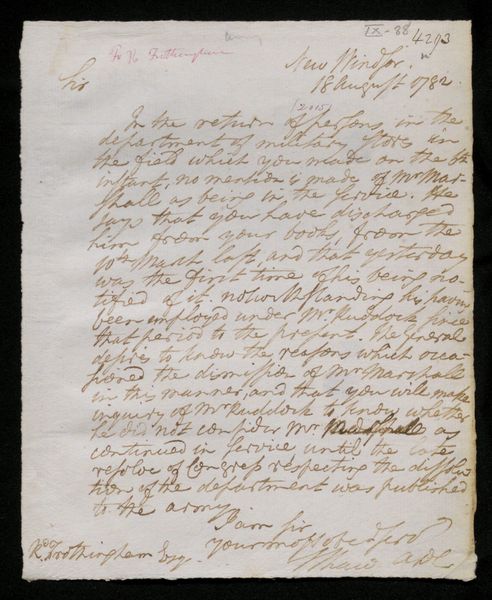 IX - 88
4293
To R Frothingham
New Windsor.
18 August 1782
Sir
(2015)
In the return of persons in the
department of military stores in
the field which you made on the 6th
instant, no mention is made of Mr Mar-
shall as being in the service. He
says that you have discharged
him from your books, from the
10th March last, and that yesterday
was the first time of his being no-
tified of it, notwithstanding his having
been employed under Mr Ruddock since
that period to the present. The General
desires to know the reasons which occa-
sioned the dismission of Mr Marshall
in this manner, and that you will make
inquiry of Mr Ruddock to know whether
he did not consider Mr Marshall as
continued in service until the late
resolve of Congress respecting the dissolu-
tion of the department was published
to the army.
I am Sir
your most obed serv
R. Frothingham Esq.
Shaw ADC